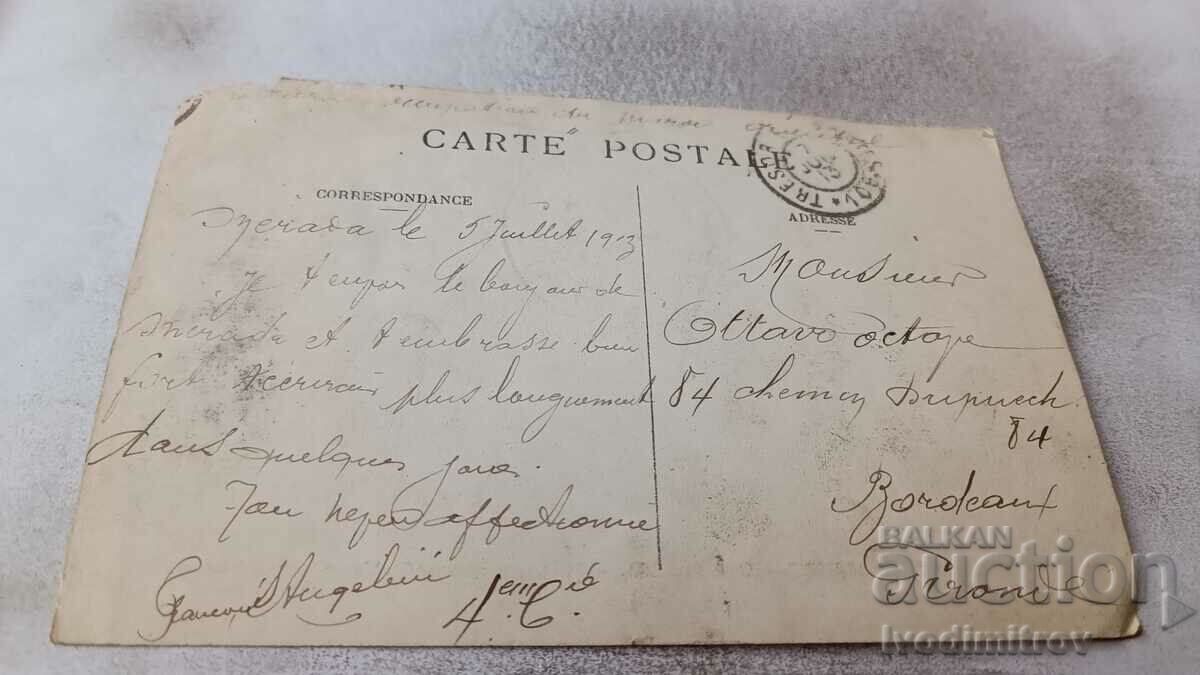 occupation du Maroc
CARTE POSTALE
TRESOR
CORRESPONDANCE
ADRESSE
le 5 Juillet 1913
Je t'envoi le bonjour de
et t'embrasse bien
fort t'écrirais plus longuement
dans quelques jours
Ton neveu affectionné
Angelini
4eme Cie
Monsieur
Ottavo octape
84 chemin Dupuech
84
Bordeaux
Gironde
BALKAN
auction
Ivodimitrov